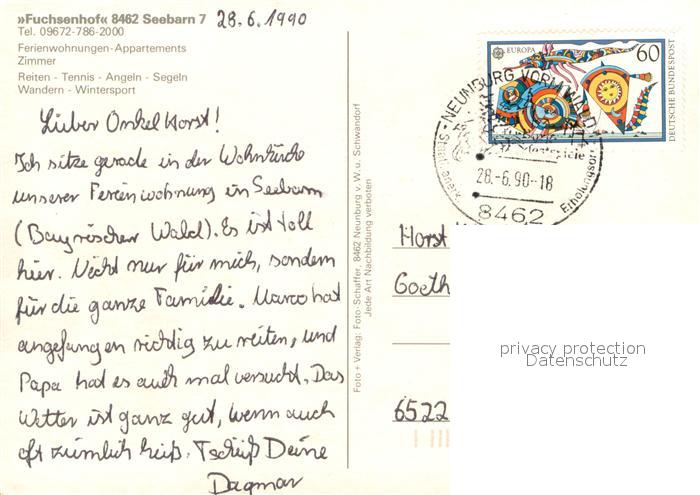 »Fuchsenhof« 8462 Seebarn 7
28.6.1990
Tel. 09672-786-2000
Ferienwohnungen-Appartements
Zimmer
Reiten - Tennis - Angeln - Segeln
Wandern - Wintersport
Lieber Onkel Horst!
Ich sitze gerade in der Wohnküche
unserer Ferienwohnung in Seebarn
(Bayrischer Wald). Es ist toll
hier. Nicht nur für mich, sondern
für die ganze Familie. Marco hat
angefangen richtig zu reiten, und
Papa hat es auch mal versucht. Das
Wetter ist ganz gut, wenn auch
oft ziemlich heiß. Tschüß Deine
Dagmar
Foto + Verlag: Foto-Schaffer, 8462 Neunburg v. W. u. Schwandorf
Jede Art Nachbildung verboten
EUROPA
60
DEUTSCHE BUNDESPOST
NEUNBURG VORM WALD
Festspiele
28.-6.90-18
8462
Erholungsort
Horst
Goeth
6522
privacy protection
Datenschutz